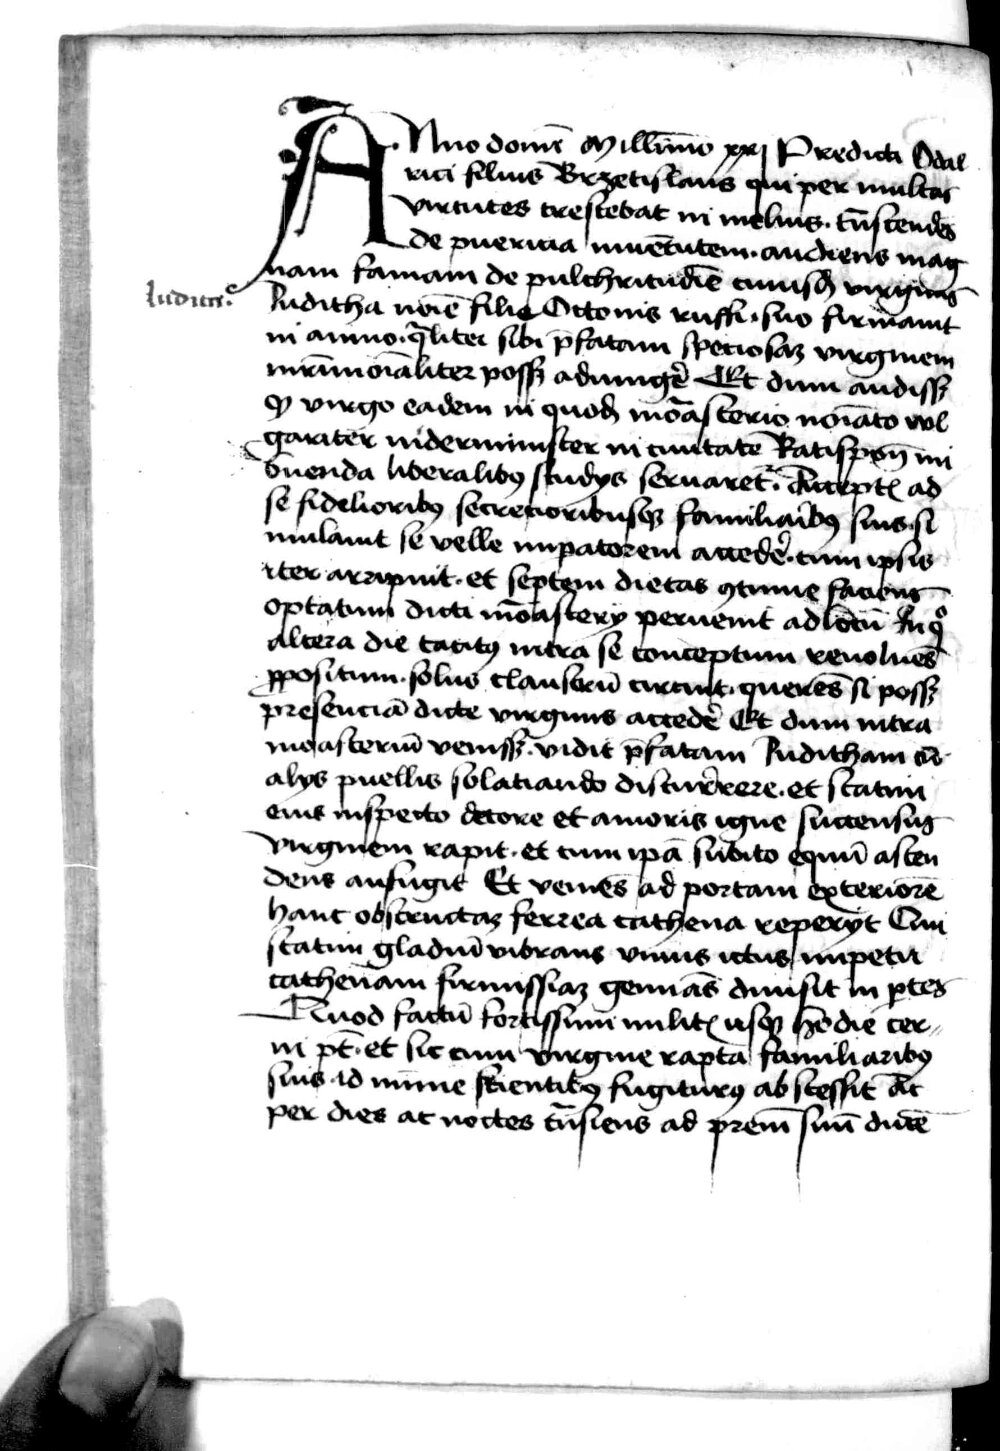 ANno domī Millīmo xxj Predicti Odal
rici filius Brzetislaus qui per multas
virtutes crescebat in melius · tn̄scendēs
de puericia iuuētutem · audiens mag
nam famam de pulchritudīe cuiusdam virginis
Iudith.ᵉ
Juditha noīe filie Ottonis ruffi · suo firmauit
in animo · qͣliter sibi p̄fatam speciosaʒ virginem
m̄rimoīaliter possʒ adiungeʳ Et dum audissʒ
qͥ virgo eadem in quodam mōasterio noīato wl
gariter nidermunster in ciuitate Ratisponn̄ im
buenda liberalibꝰ studijs seruaretᷣ · Acceptꝭ ad
se fidelioribꝰ secrecioribusqʒ familiaribꝰ suis · si
mulauit se velle imp̄atorem accedeʳ · cum ipsis
iter arripuit · et septem dietas ꝯtinue faciens
optatum dicti mōasterij peruenit ad locū In qͦ
altera die tacitꝰ intra se conceptum reuoluēs
ꝓpositum · solus claustrū circuit · querēs si possʒ
presenciā dicte virginis accedeʳ Et dum intra
monasteriū venissʒ · vidit p̄fatam Juditham cū
alijs puellis solaciando discurrere · et statim
eius inspecto decore et amoris igne succensus
virginem rapit · et cum ipā subito equū ascen
dens aufugit Et veniēs ad portam exteriorē
hanc obstructaʒ ferrea cathena reperijt Cui
statim gladiū vibrans vnius ictus impetu
cathenam firmissiaʒ gemiās diuisit in ꝑtes
Quod factū fortissimi militꝭ usqʒ hodie cer
ni pt̄ · et sic cum virgine rapta familiaribꝰ
suis · id minime scientibꝰ fugiturꝰ abscessit Ac
per dies ac noctes tn̄siens ad prem̄ suū ducē